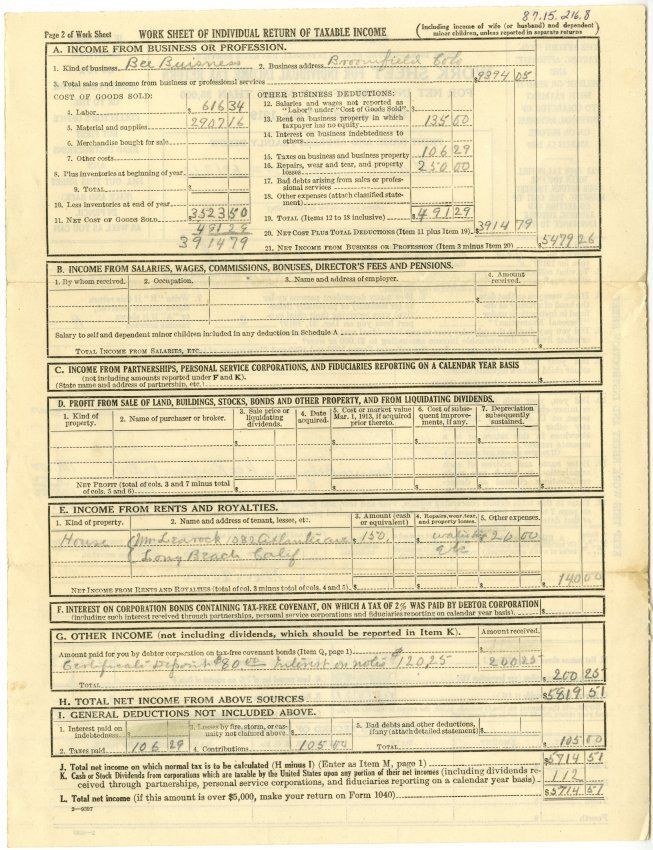 87.15.216.8
Page 2 of Work Sheet WORK SHEET OF INDIVIDUAL RETURN OF TAXABLE INCOME (Including income of wife (or husband) and dependent minor children, unless reported in separate returns)
A. INCOME FROM BUSINESS OR PROFESSION.
1. Kind of business Bee Buisness 2. Business address Broomfield Colo
3. Total sales and income from business or professional services $9394 05
COST OF GOODS SOLD: OTHER BUSINESS DEDUCTIONS:
4. Labor $ 616 34
5. Material and supplies 2907 16
6. Merchandise bought for sale
7. Other costs
8. Plus inventories at beginning of year
9. TOTAL $
10. Less inventories at end of year
11. NET COST OF GOODS SOLD $3523 50
491 29
3914 79
12. Salaries and wages not reported as "Labor" under "Cost of Goods Sold" $
13. Rent on business property in which taxpayer has no equity 135 00
14. Interest on business indebtedness to others
15. Taxes on business and business property 106 29
16. Repairs, wear and tear, and property losses 250 00
17. Bad debts arising from sales or professional services
18. Other expenses (attach classified statement)
19. TOTAL (Items 12 to 18 inclusive) $491 29
20. NET COST PLUS TOTAL DEDUCTIONS (Item 11 plus Item 19) $3914 79
21. NET INCOME FROM BUSINESS OR PROFESSION (Item 3 minus Item 20) $5479 26
B. INCOME FROM SALARIES, WAGES, COMMISSIONS, BONUSES, DIRECTOR'S FEES AND PENSIONS.
1. By whom received. 2. Occupation. 3. Name and address of employer. 4. Amount received.
$
Salary to self and dependent minor children included in any deduction in Schedule A
TOTAL INCOME FROM SALARIES, ETC.
C. INCOME FROM PARTNERSHIPS, PERSONAL SERVICE CORPORATIONS, AND FIDUCIARIES REPORTING ON A CALENDAR YEAR BASIS
(not including amounts reported under F and K).
(State name and address of partnership, etc.)
D. PROFIT FROM SALE OF LAND, BUILDINGS, STOCKS, BONDS AND OTHER PROPERTY, AND FROM LIQUIDATING DIVIDENDS.
1. Kind of property. 2. Name of purchaser or broker. 3. Sale price or liquidating dividends. 4. Date acquired. 5. Cost or market value Mar. 1, 1913, if acquired prior thereto. 6. Cost of subsequent improvements, if any. 7. Depreciation subsequently sustained.
$ $ $ $
NET PROFIT (total of cols. 3 and 7 minus total of cols. 5 and 6)
E. INCOME FROM RENTS AND ROYALTIES.
1. Kind of property. 2. Name and address of tenant, lessee, etc. 3. Amount (cash or equivalent) 4. Repairs, wear, tear, and property losses. 5. Other expenses.
House 1082 Atlantic ave $150, $ $ 20 00
Long Beach Calif etc
NET INCOME FROM RENTS AND ROYALTIES (total of col. 3 minus total of cols. 4 and 5) 140 00
F. INTEREST ON CORPORATION BONDS CONTAINING TAX-FREE COVENANT, ON WHICH A TAX OF 2% WAS PAID BY DEBTOR CORPORATION
(including such interest received through partnerships, personal service corporations and fiduciaries reporting on calendar year basis).
G. OTHER INCOME (not including dividends, which should be reported in Item K). Amount received.
Amount paid for you by debtor corporation on tax-free covenant bonds (Item Q, page 1) $
Certificate Deposit $80.00 Interest on notes $120,25 200 25
TOTAL $ 200 25
H. TOTAL NET INCOME FROM ABOVE SOURCES $5819 51
I. GENERAL DEDUCTIONS NOT INCLUDED ABOVE.
1. Interest paid on indebtedness $ 3. Losses by fire, storm, or casualty not claimed above $ 5. Bad debts and other deductions, if any (attach detailed statement) $
2. Taxes paid 106 29 4. Contributions 105 00 TOTAL 105 00
J. Total net income on which normal tax is to be calculated (H minus I) (Enter as Item M, page 1) $5714 51
K. Cash or Stock Dividends from corporations which are taxable by the United States upon any portion of their net incomes (including dividends received through partnerships, personal service corporations, and fiduciaries reporting on calendar year basis) 112
L. Total net income (if this amount is over $5,000, make your return on Form 1040) $5714 51
2—9397